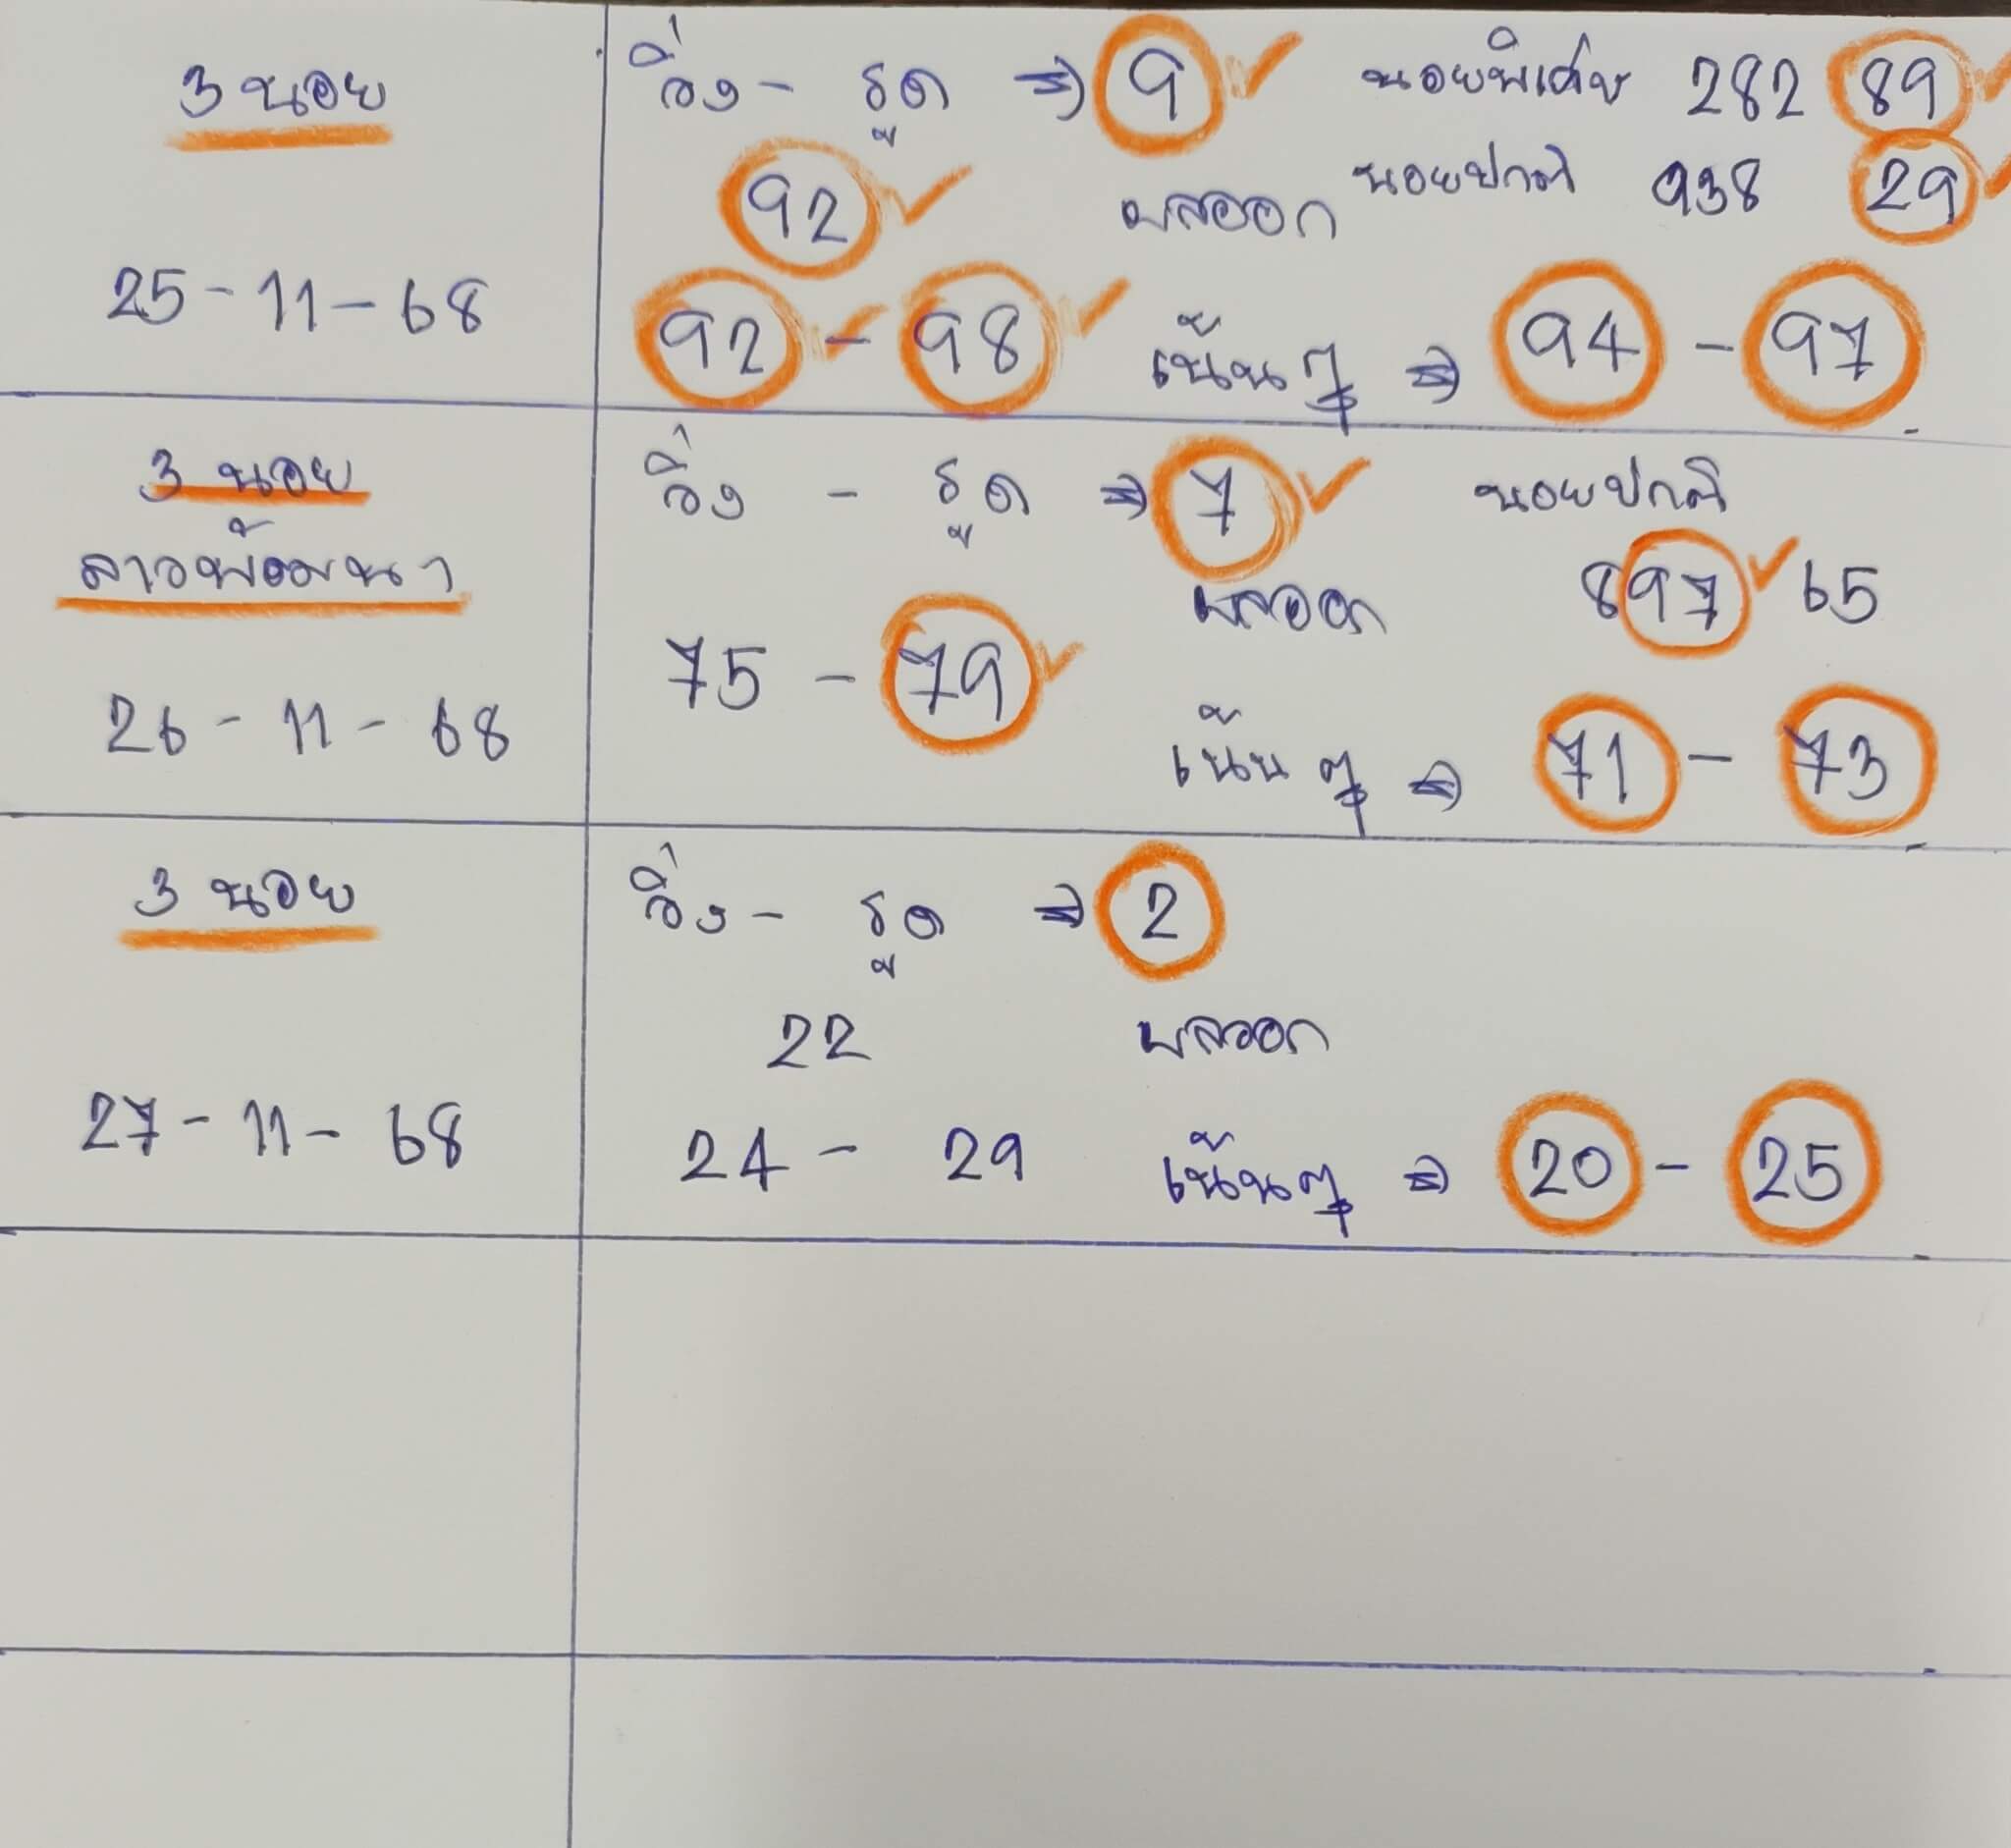 3 นอย
25 - 11 - 68
วิ่ง - รูด ⇒ 9 ✓ นอยพิเศษ 282 89 ✓
92 ✓ ผลออก นอยปกติ 938 29 ✓
92 ✓ - 98 ✓ เน้นๆ ⇒ 94 - 97
3 นอย
ลาวพัฒนา
26 - 11 - 68
วิ่ง - รูด ⇒ 7 ✓ นอยปกติ
ผลออก 897 ✓ 65
75 - 79 ✓
เน้นๆ ⇒ 71 - 73
3 นอย
27 - 11 - 68
วิ่ง - รูด ⇒ 2
22 ผลออก
24 - 29 เน้นๆ ⇒ 20 - 25